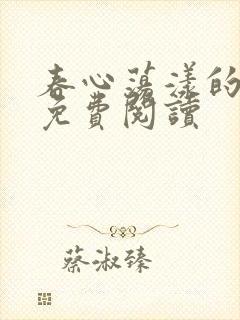 春心蕩漾的
免費閱讀
蔡淑臻